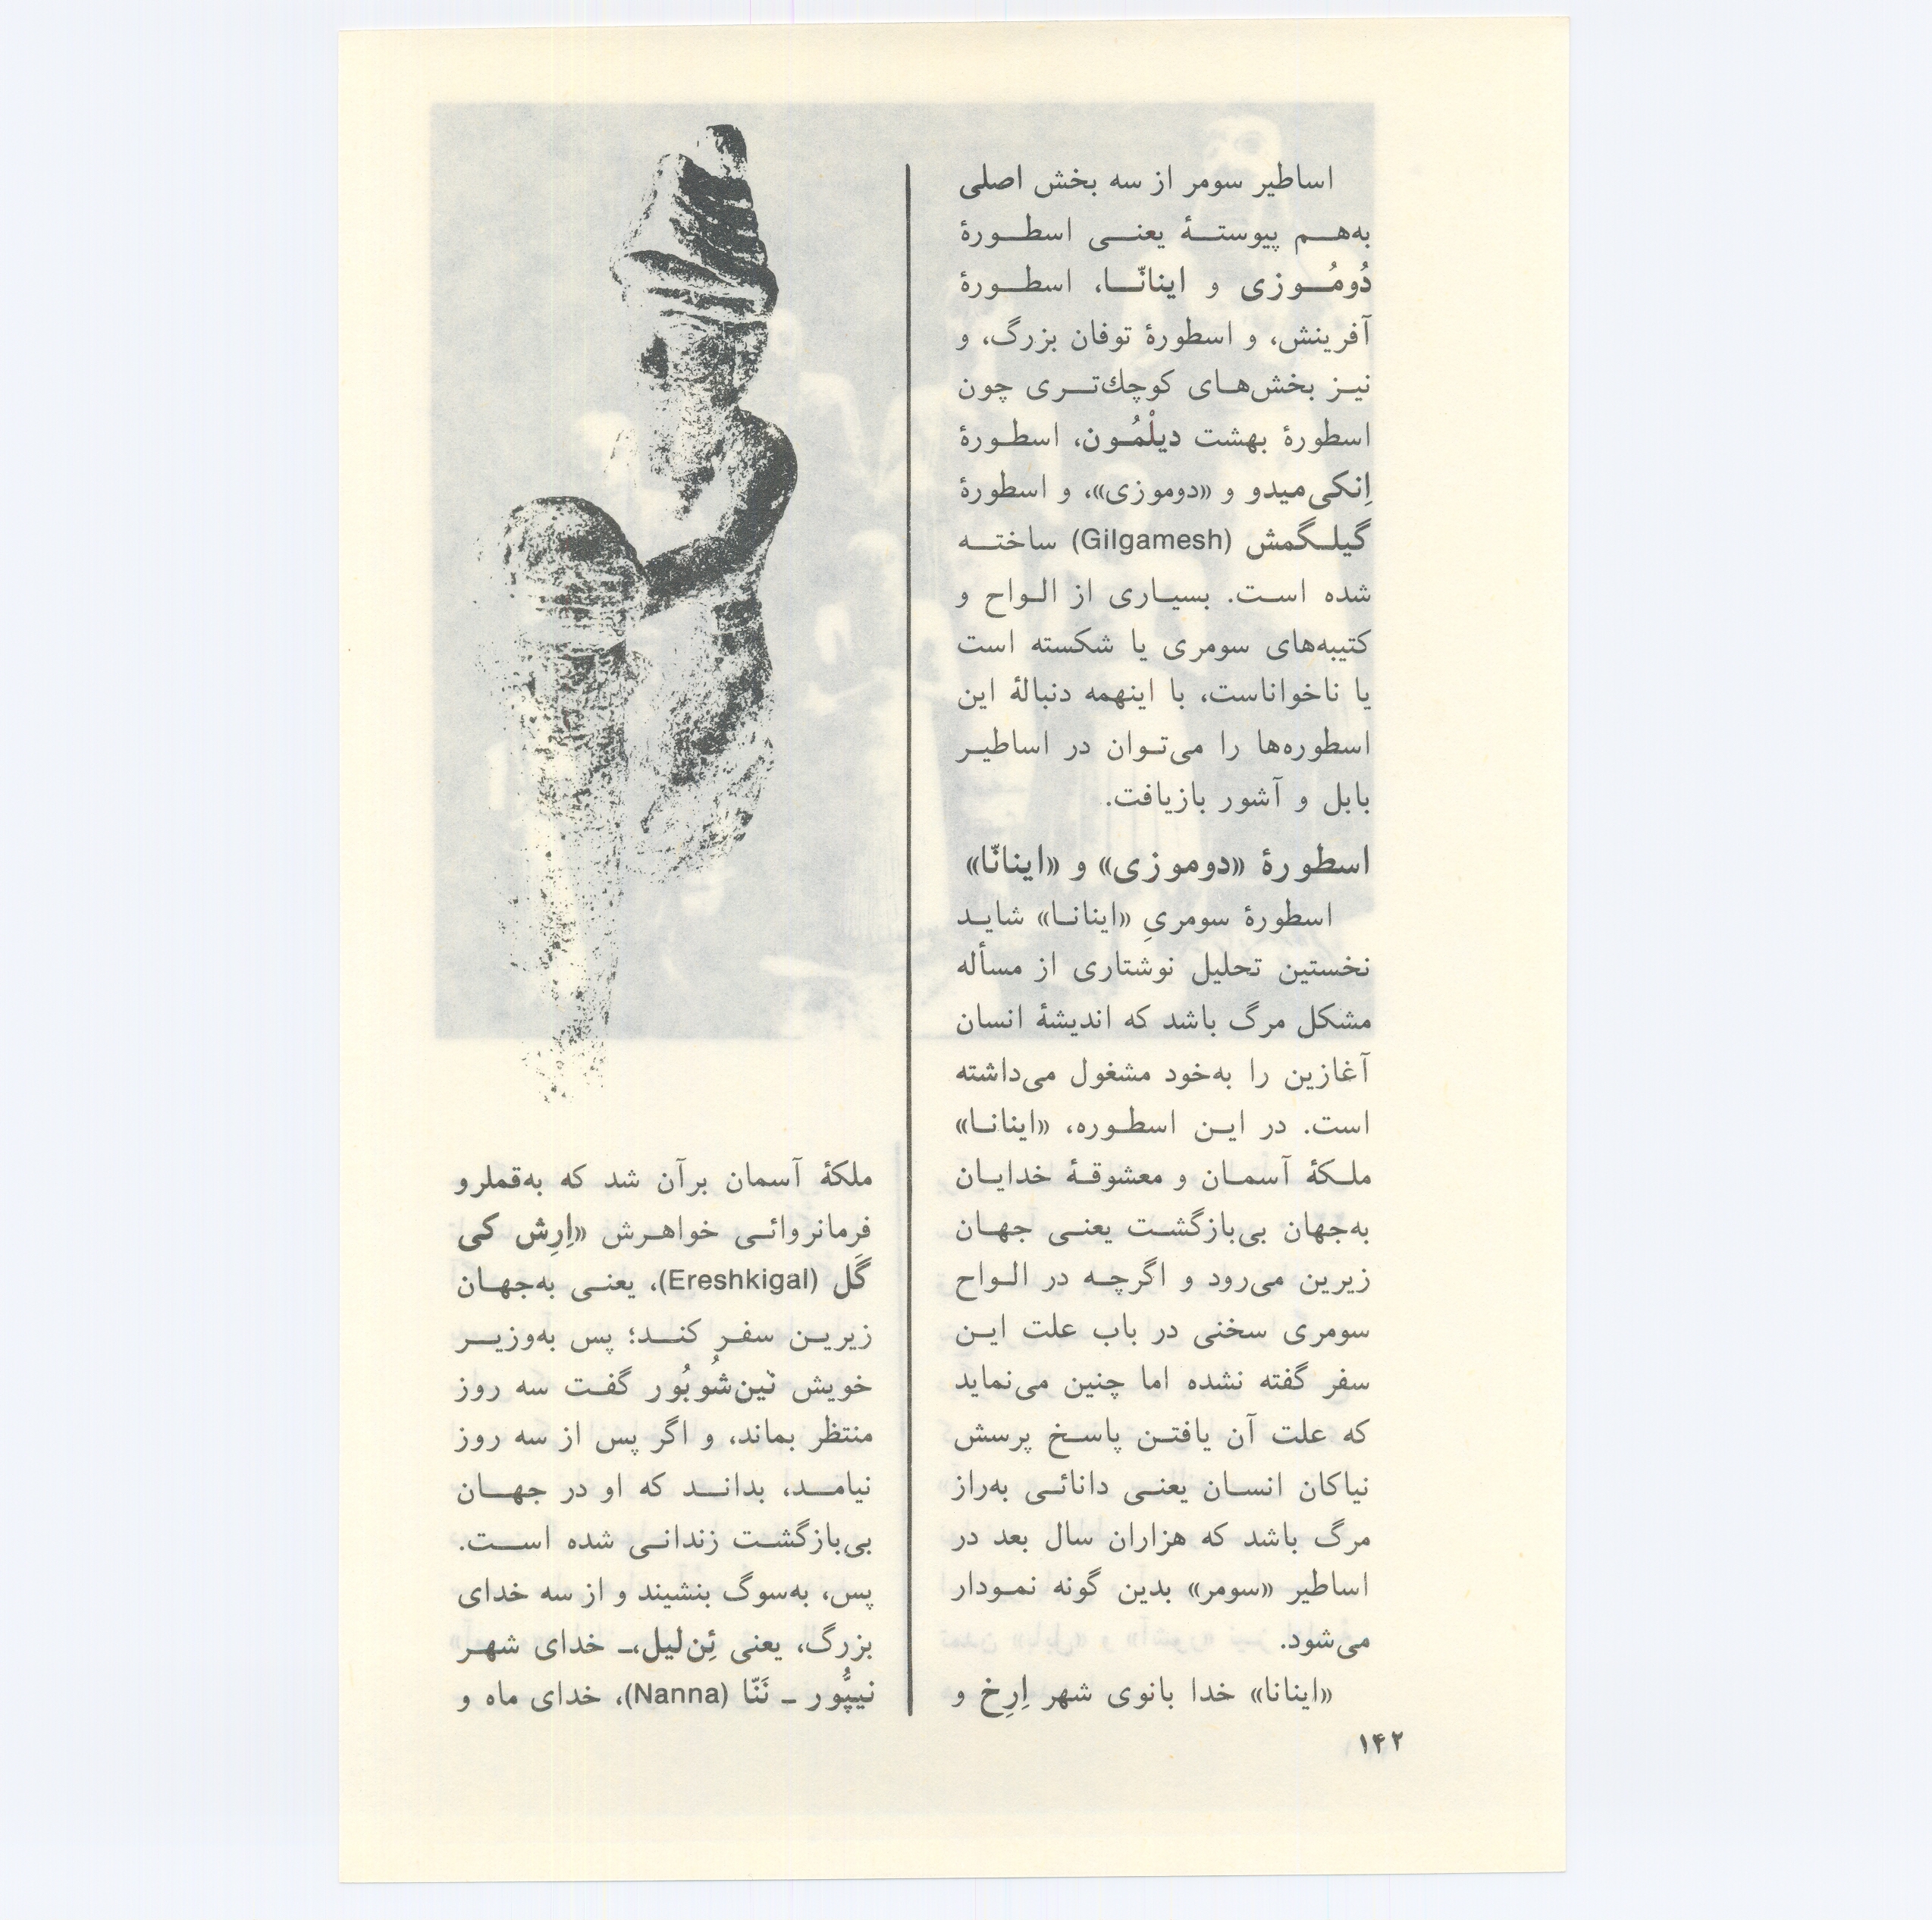 اساطیر سومر از سه بخش اصلی
به‌هم پیوستهٔ یعنی اسطورهٔ
دُومُوزی و اینانّا، اسطورهٔ
آفرینش، و اسطورهٔ توفان بزرگ، و
نیز بخش‌های کوچك‌تری چون
اسطورهٔ بهشت دیلْمُون، اسطورهٔ
اِنکی‌میدو و «دوموزی»، و اسطورهٔ
گیلگمش (Gilgamesh) ساخته
شده است. بسیاری از الواح و
کتیبه‌های سومری یا شکسته است
یا ناخواناست، با اینهمه دنبالهٔ این
اسطوره‌ها را می‌توان در اساطیر
بابل و آشور بازیافت.
اسطورهٔ «دوموزی» و «اینانّا»
اسطورهٔ سومریِ «اینانا» شاید
نخستین تحلیل نوشتاری از مسأله
مشکل مرگ باشد که اندیشهٔ انسان
آغازین را به‌خود مشغول می‌داشته
است. در این اسطوره، «اینانا»
ملکهٔ آسمان و معشوقهٔ خدایان
به‌جهان بی‌بازگشت یعنی جهان
زیرین می‌رود و اگرچه در الواح
سومری سخنی در باب علت این
سفر گفته نشده اما چنین می‌نماید
که علت آن یافتن پاسخ پرسش
نیاکان انسان یعنی دانائی به‌راز
مرگ باشد که هزاران سال بعد در
اساطیر «سومر» بدین گونه نمودار
می‌شود.
«اینانا» خدا بانوی شهر اِرِخ و
ملکهٔ آسمان برآن شد که به‌قملرو
فرمانروائی خواهرش «اِرِش کی
گَل (Ereshkigal)، یعنی به‌جهان
زیرین سفر کند؛ پس به‌وزیر
خویش نین‌شُوبُور گفت سه روز
منتظر بماند، و اگر پس از سه روز
نیامد، بداند که او در جهان
بی‌بازگشت زندانی شده است.
پس، به‌سوگ بنشیند و از سه خدای
بزرگ، یعنی ئِن‌لیل،ـ خدای شهر
نیپُّور ـ نَنّا (Nanna)، خدای ماه و
۱۴۲